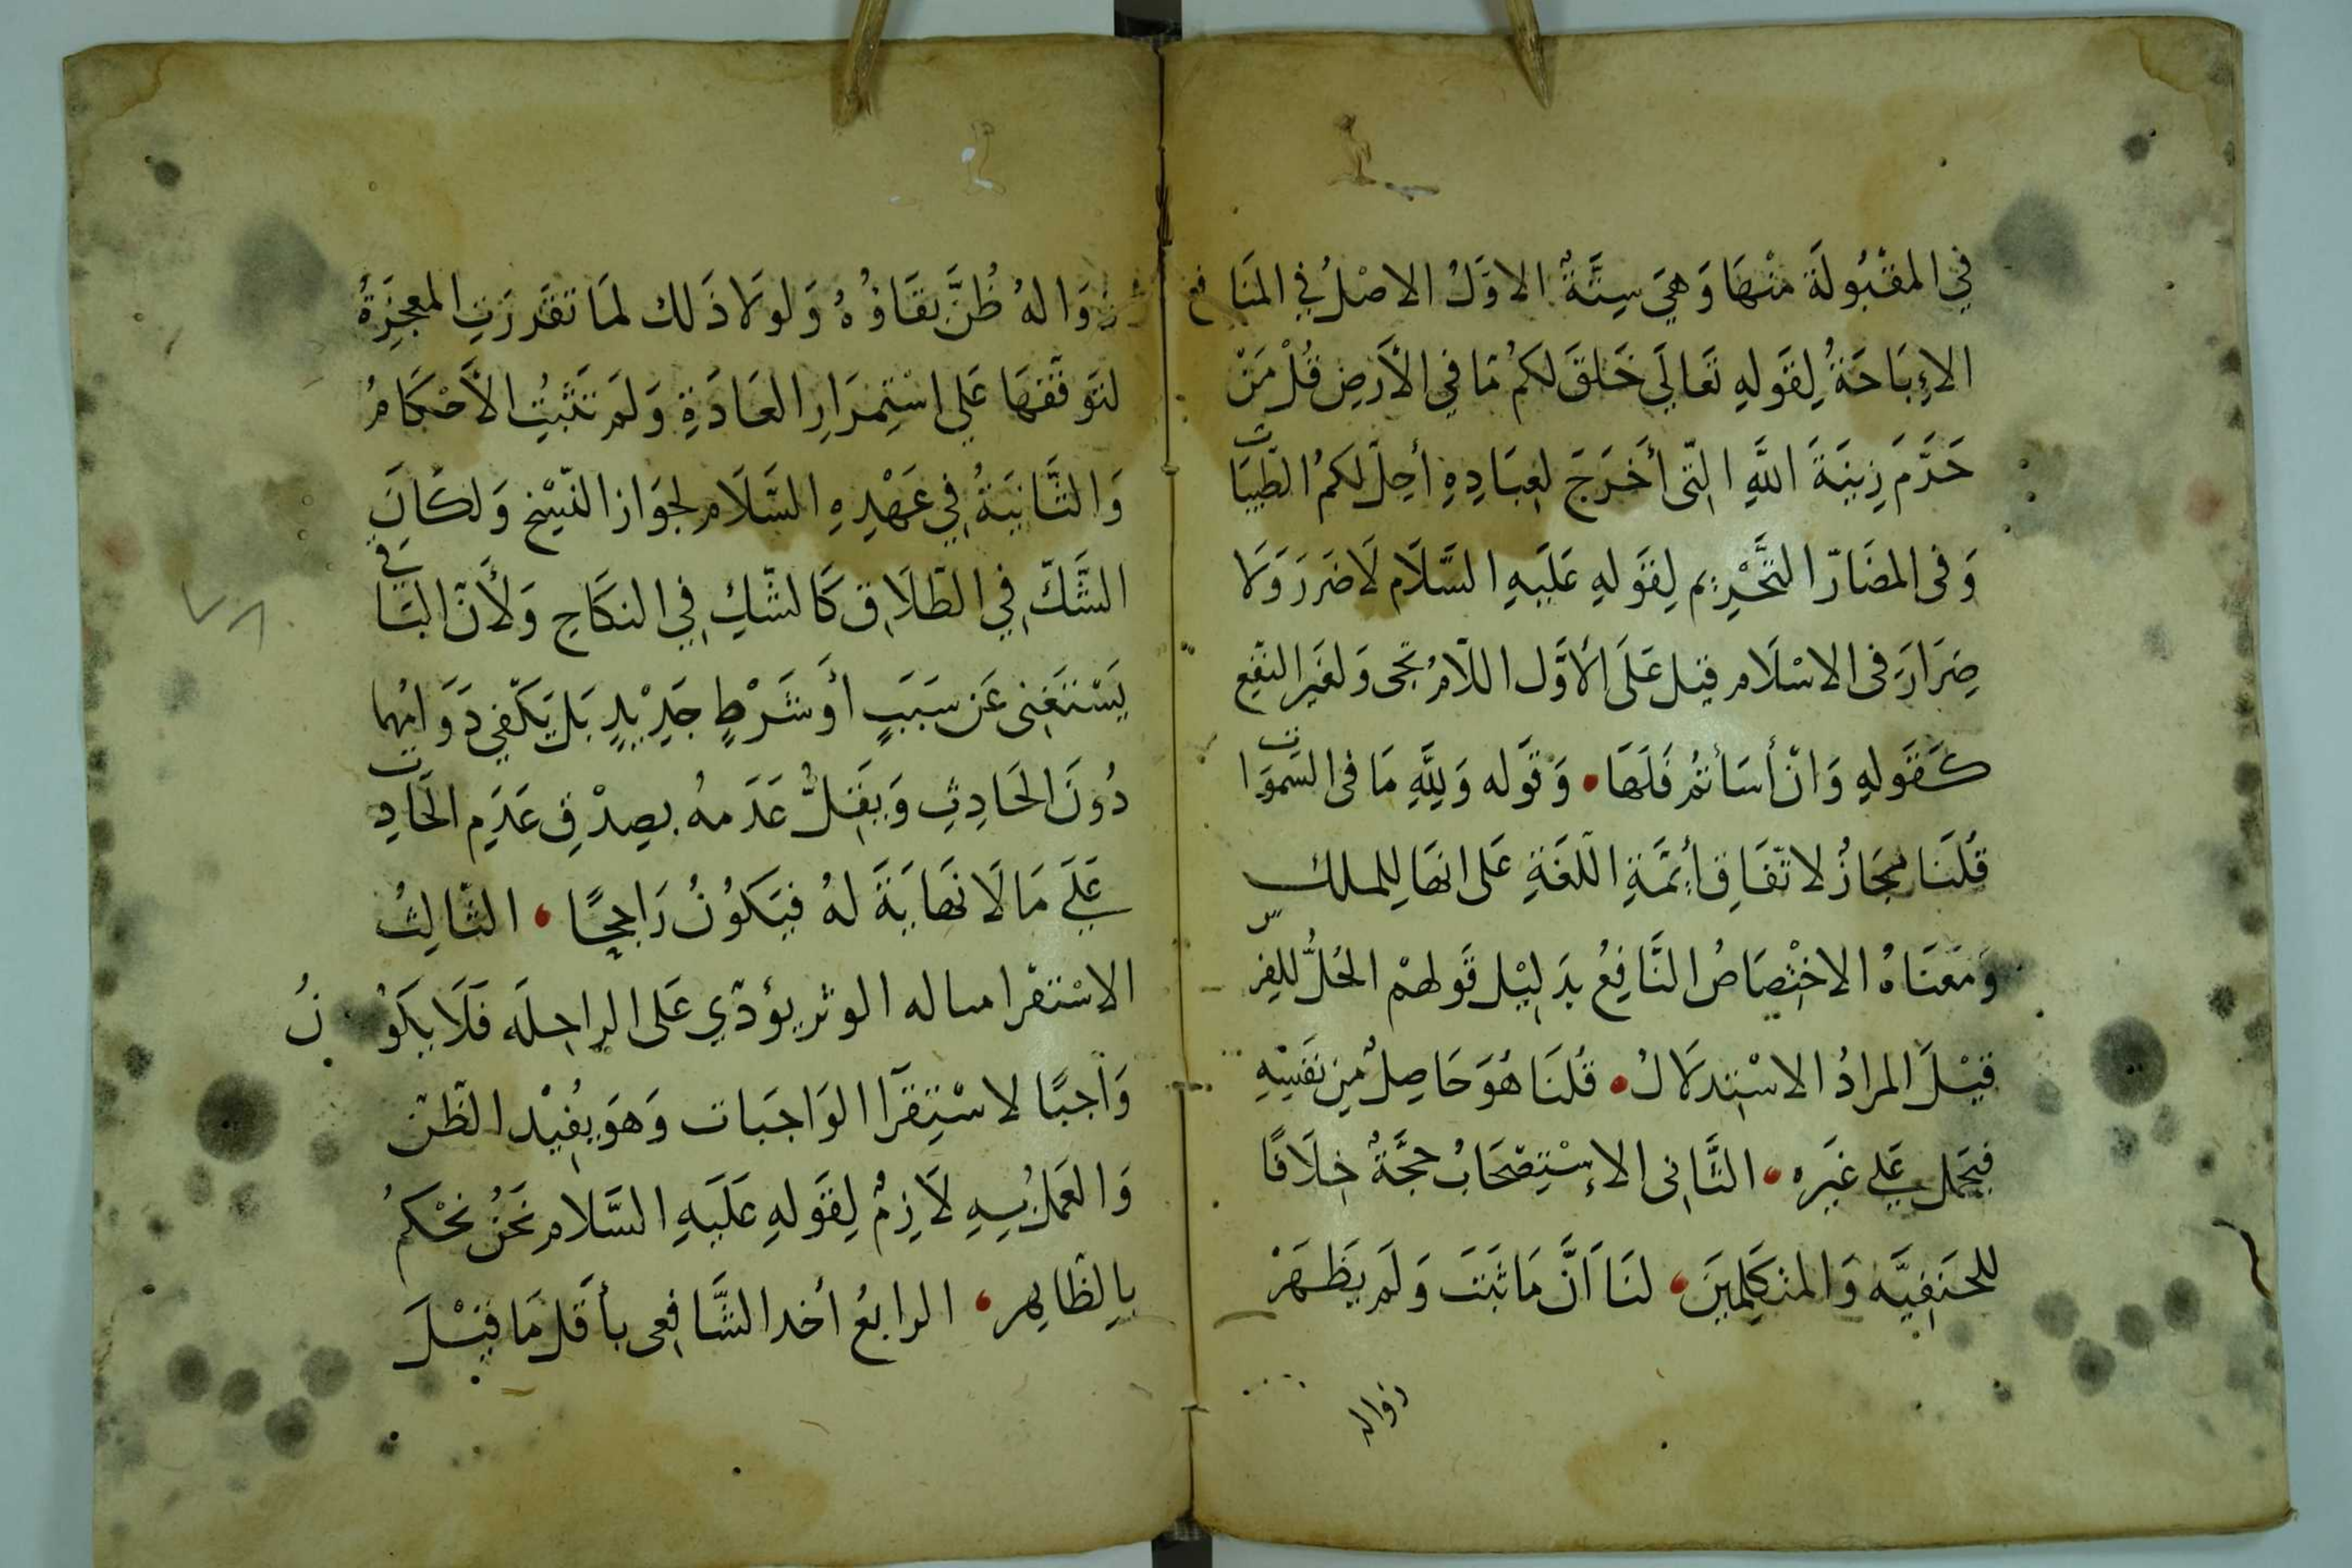 في المقْبُولَة منْهَا وَهيَ سِتَّةٌ الاوّلُ الاصْلُ فِي المنَافع
الإِبَاحَةُ لِقَولِهِ تَعَالَي خَلقَ لكمُ مَا فِي الأَرضِ قُلْ مَنْ
حَرَّمَ زِينَةَ اللَّهِ الِتّى أَخرَجَ لعِبَادِهِ أحِلّ لكمُ الطّيِبَات
وَفى المضَارّ التَّحْرِيم لِقَولِهِ عَلَيهِ السَّلَام لَا ضَرَرَ وَلا
ضِرَارَ فى الاسْلَام قيل عَلَى الأوَّل اللّامُ تجى وَلغَير النّفع
كَقَولِهِ وَانْ أسَأتمُ فَلَهَا وَقَوله وَلِلَّهِ مَا فى السّموَات
قُلنَا مجَازٌ لاتّفَاقِ أَئمَّةِ اللّغَةِ عَلى انهَا لِلملك
وَمَعنَاهُ الاخْتِصَاصُ النَّافِعُ بدَلِيْل قَولهمْ الجُلُّ للفرس
قيْلَ المرادُ الاسْتِدلَالُ قُلنَا هُوَ حَاصِلٌ مِن نَفسِهِ
فيحمَل عَلي غيَره الثَّانِى الاِسْتِصْحَابُ حجَّةٌ خِلَافًا
للحَنِفيَّه وَالمتكَلِمينَ لنَا أنَّ مَا ثَبتَ وَلَم يَظهَرْ
زواله
زوَالهُ ظُنَّ بقَاؤُهُ وَلولَا ذَلك لمَا تقَررَتِ المعجِزَةُ
لتوَقّفهَا عَلي اسْتِمرَارِ العَادَةِ وَلَم تَثبتِ الأحْكَامُ
وَالثَّانيَةُ فِي عَهْدِهِ السَّلَام لجوَاز النّسْخ وَلكَانَ
الشَّكّ فِي الطّلَاق كَالشّكِ فِي النكَاحِ وَلأَنّ البَاقي
يَسْتَغنِى عَن سَبَبٍ أوشَرْطٍ جَدِيْدٍ بَل يَكفِي دَوَامُهما
دُونَ الحَادِثِ وَيقِلُّ عَدَمهُ بصِدْقِ عَدَمِ الحَادِث
عَلَي مَالَا نهَايَةَ لهُ فيَكوُنُ رَاجحًا الثّالِثُ
الاسْتقرا مساله الوتر يؤدّي عَلى الراحِلَه فَلَا يكَونُ
وَاجبًا لاسْتِقرَآ الوَاجبَات وَهوَ يفُيْد الظّنّ
وَالعَملُ بِهِ لَازِمٌ لِقَولِهِ عَلَيهِ السَّلام نَحنُ نحْكمُ
بِالظّاهِر الرابعُ أخد الشَّافِعى بأقَل مَا قيْلَ